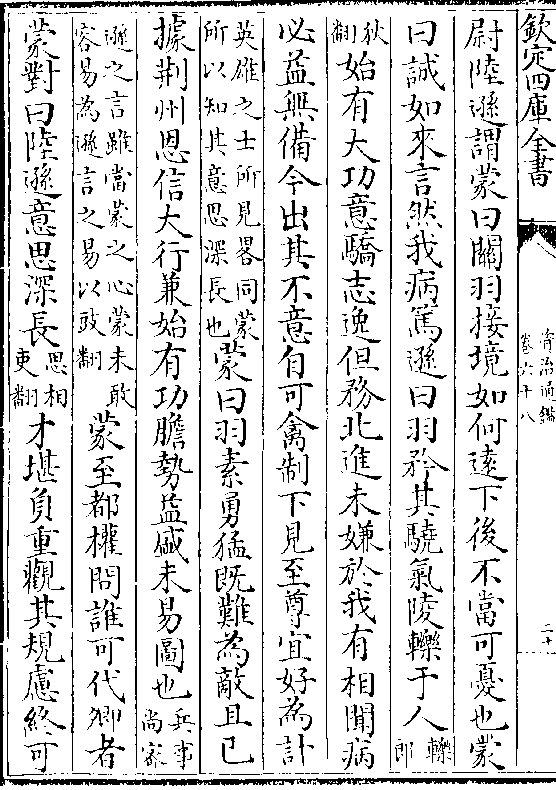 欽定四庫全書
資治通鑑
卷六十八
二十
尉陸遜謂蒙曰關羽接境如何遠下後不當可憂也蒙
曰誠如來言然我病篤遜曰羽矜其驍氣陵轢于人轢郎
狄翻始有大功意驕志逸但務北進未嫌於我有相聞病
必益無備今出其不意自可禽制下見至尊宜好為計
英雄之士所見畧同蒙所以知其意思深長也蒙曰羽素勇猛既難為敵且已
據荆州恩信大行兼始有功膽勢益盛未易圖也兵事尚密
遜之言雖當蒙之心蒙未敢容易為遜言之易以豉翻蒙至都權問誰可代卿者
蒙對曰陸遜意思深長思相吏翻才堪負重觀其規慮終可